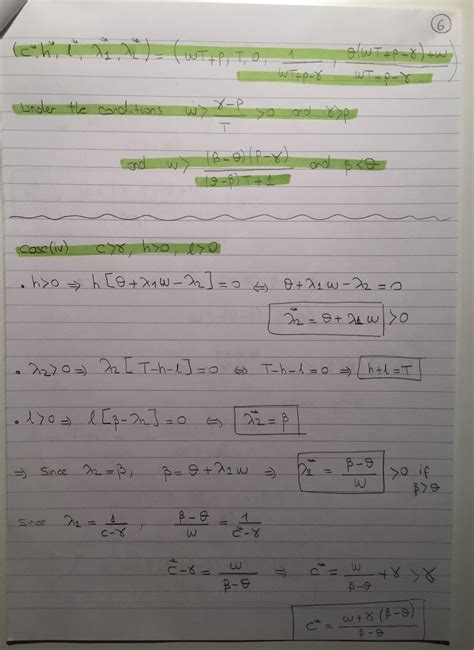 6
(c*, h*, l*, λ1*, λ2*) = (wT+p, T, 0, 1/(wT+p-γ), (θ(wT+p-γ)+w)/(wT+p-γ))
under the conditions w > (γ-p)/T > 0 and γ>p
and w > (β-θ)(p-γ)/((θ-β)T+1) and β<θ
case(iv) c>γ, h>0, l>0
• h>0 ⇒ h[θ+λ1w-λ2]=0 ⇔ θ+λ1w-λ2=0
λ2* = θ+λ1w >0
• λ2>0 ⇒ λ2[T-h-l]=0 ⇔ T-h-l=0 ⇒ h+l=T
• l>0 ⇒ l[β-λ2]=0 ⇔ λ2*=β
⇒ Since λ2=β, β=θ+λ1w ⇒ λ1* = (β-θ)/w >0 if
β>θ
Since λ1 = 1/(c-γ), (β-θ)/w = 1/(c*-γ)
c*-γ = w/(β-θ) ⇒ c* = w/(β-θ) + γ > γ
c* = (w+γ(β-θ))/(β-θ)